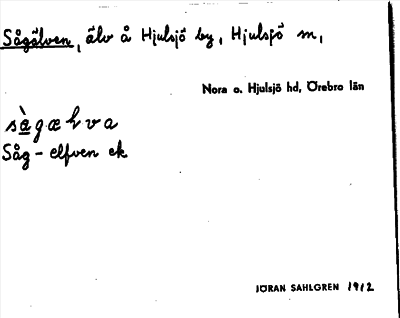 Sågälven, älv å Hjulsjö by, Hjulsjö m,
Nora o. Hjulsjö hd, Örebro län
Såg-elfven ek
JÖRAN SAHLGREN 1912